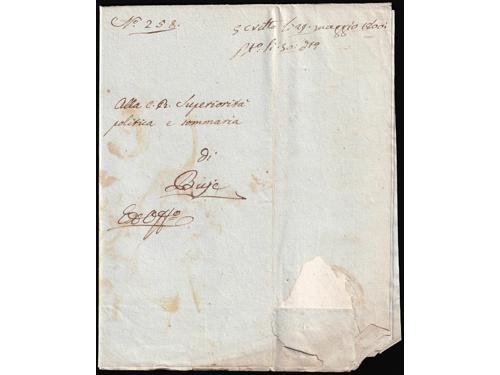 No. 258.
Scritto li 29. maggio 1800.
li 30. dto
Alla C. R. Superiorità
politica e sommaria
di
Buje
Ex Offo